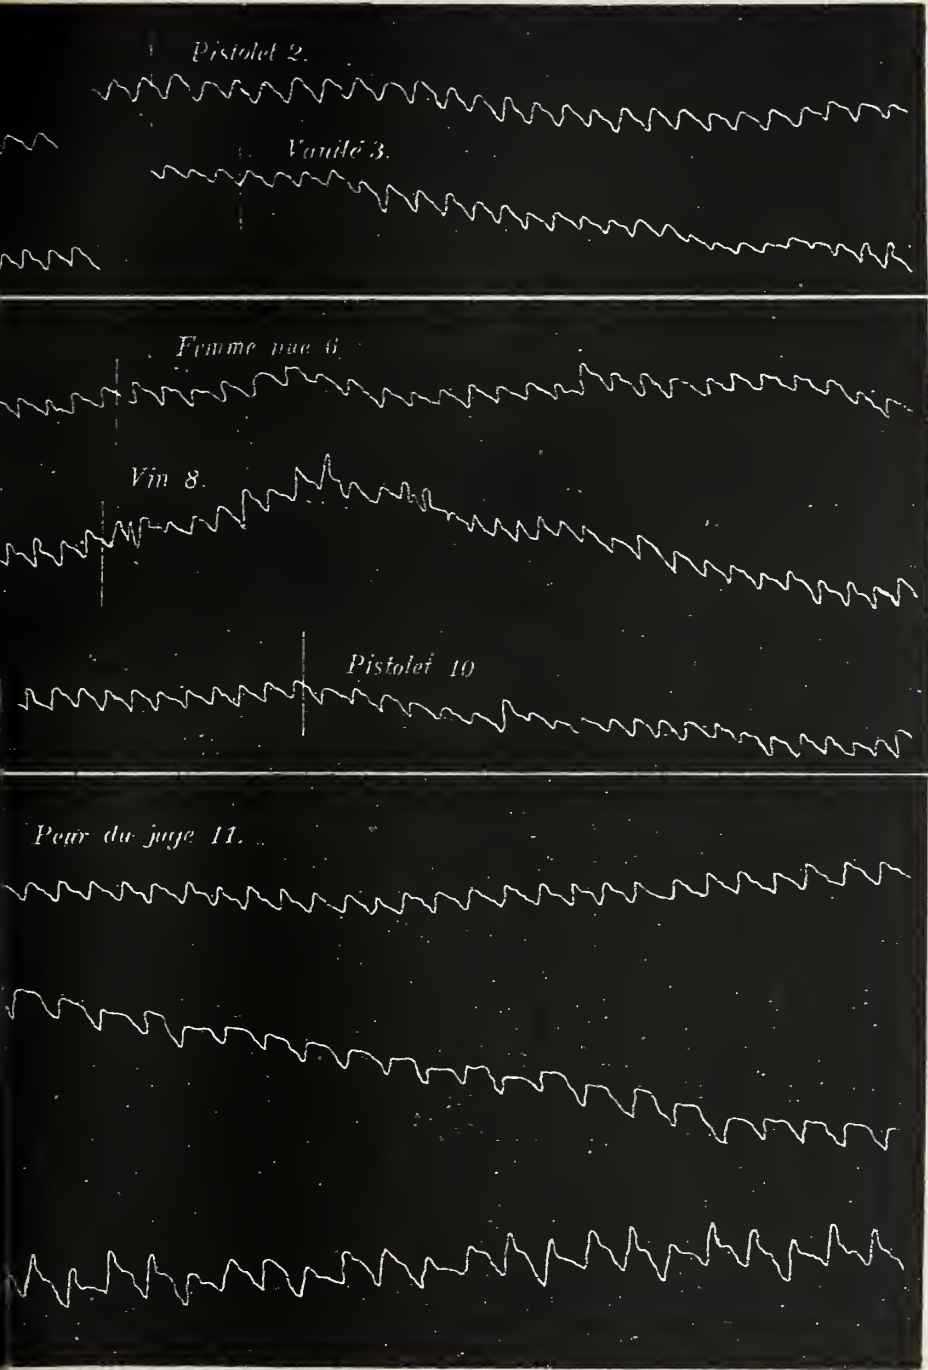 Pistolet 2.
Vanité 3.
Femme nue 6
Vin 8.
Pistolet 10
Peur du juge 11.